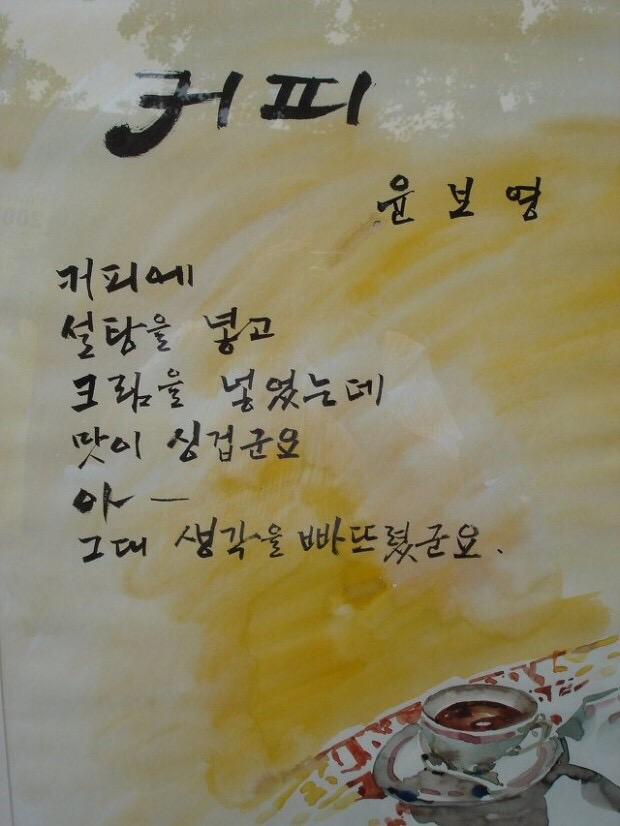 커피
윤보영
커피에
설탕을 넣고
크림을 넣었는데
맛이 싱겁군요
아 —
그대 생각을 빠뜨렸군요.
200